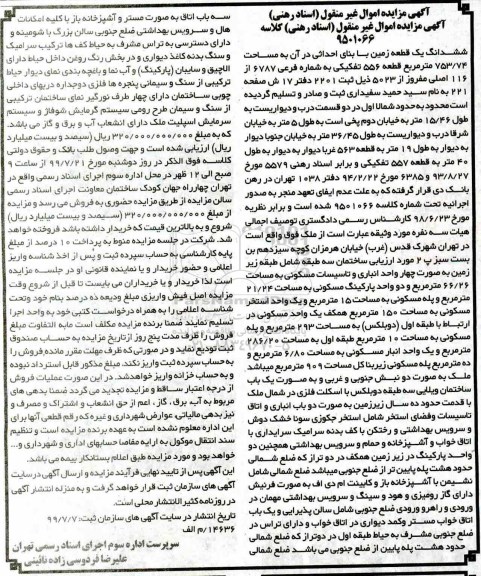 آگهی مزایده اموال غیر منقول (اسناد رهنی)
آگهی مزایده اموال غیر منقول (اسناد رهنی) کلاسه
۹۵۰۱۰۶۶
ششدانگ یک قطعه زمین با بنای احداثی در آن به مساحت
۷۵۳/۷۴ مترمربع قطعه ۵۵۶ تفکیکی به شماره فرعی ۶۷۸۷ از
۱۱۶ اصلی مفروز از ۵۰۲۳ ذیل ثبت ۲۲۰۱ دفتر ۱۷ ش صفحه
۲۲۱ به نام سید حمید سفیداری ثبت و صادر و تسلیم گردیده
است محدود به حدود شمالا اول در دو قسمت درب و دیواریست به
طول ۱۵/۴۶ متر به خیابان دوم پخی است به طول ۵ متر به خیابان
شرقا درب و دیواریست به طول ۳۶/۴۵ متر به خیابان جنوبا دیوار
به دیوار به طول ۱۹ متر به قطعه ۵۶۳ غربا دیوار به دیوار به طول
۴۰ متر به قطعه ۵۵۷ تفکیکی و برابر اسناد رهنی ۵۵۷۹ مورخ
۹۳/۸/۲۷ و ۶۳۸۵ مورخ ۹۴/۲/۲۲ دفتر ۱۰۳۸ تهران در رهن
بانک دی قرار گرفته که به علت عدم ایفای تعهد منجر به صدور
اجرائیه تحت شماره کلاسه ۹۵۰۱۰۶۶ شده است و برابر نظریه
مورخ ۹۸/۶/۲۳ کارشناس رسمی دادگستری توصیف اجمالی
هیات سه نفره مورد وثیقه عبارت است از ملک فوق واقع است
در تهران شهرک قدس (غرب) خیابان هرمزان کوچه سیزدهم بن
بست سبز پ ۲ مورد ارزیابی ساختمان سه طبقه شامل طبقه زیر
زمین به صورت چهار واحد انباری و تاسیسات مسکونی به مساحت
۶۶/۲۶ مترمربع و دو واحد پارکینگ مسکونی به مساحت ۲۱/۲۴
مترمربع و پله مسکونی به مساحت ۱۵ مترمربع و یک واحد استخر
مسکونی به مساحت ۱۵۰ مترمربع همکف یک واحد مسکونی در
ارتباط با طبقه اول (دوبلکس) به مساحت ۲۹۳ مترمربع و پله
مسکونی به مساحت ۱۰ مترمربع طبقه اول به مساحت ۲۸۶/۲۰
مترمربع و یک واحد انبار مسکونی به مساحت ۶/۸۰ مترمربع و
ده مترمربع پله مسکونی زیربنا کل مساحت ۹۰۹ مترمربع میباشد
ملک به صورت دو نبش جنوبی و غربی و به صورت یک باب
ساختمان ویلایی سه طبقه دوبلکس با اسکلت فلزی در شمال ملک
با قدمت حدود ده سال زیرزمین به صورت دو باب انباری و اتاق
تاسیسات وفضای استخر شامل استخر جکوزی سونا خشک دوش
و سرویس بهداشتی و رختکن با کف بدنه سرامیک سرایداری با
اتاق خواب و آشپزخانه و حمام و سرویس بهداشتی همچنین دو
واحد پارکینگ در زیر زمین همکف در دو تراز که ضلع شمالی
حدود هشت پله پایین تر از ضلع جنوبی میباشد ضلع شمالی شامل
نشیمن با آشپزخانه باز و کابینت ام دی اف به صورت فرنیش
دارای گاز رومیزی و هود و سینگ و سرویس بهداشتی مهمان در
ورودی و راهرو ورودی ضلع جنوبی شامل سالن پذیرایی و یک باب
اتاق خواب مستر وکمد دیواری در اتاق خواب و دارای تراس در
ضلع جنوبی مشرف به حیاط طبقه اول در دوتراز که ضلع شمالی
حدود هشت پله پایین از ضلع جنوبی می باشد ضلع شمالی
سه باب اتاق به صورت مستر و آشپزخانه باز با کلیه امکانات
هال و سرویس بهداشتی ضلع جنوبی سالن بزرگ با شومینه و
دارای دسترسی به تراس مشرف به حیاط کف ها ترکیب سرامیک
و سنگ بدنه کاغذ دیواری و در بخش رنگ روغن داخل حیاط دارای
آلاچیق و سایبان (پارکینگ) و آب نما و باغچه بندی نمای دیوار حیاط
ترکیبی از سنگ و سیمانی پنجره ها فلزی دوجداره دربهای داخلی
چوبی ساختمان دارای چهار طرف نورگیر نمای ساختمان ترکیبی
از سنگ و سیمان طرح رومی سیستم گرمایش شوفاژ و سیستم
سرمایش اسپلیت ملک دارای انشعاب آب و برق و گاز می باشد.
که به مبلغ ۳۲۰/۰۰۰/۰۰۰/۰۰۰ ریال (سیصد و بیست میلیارد
ریال) ارزیابی شده است و جهت وصول طلب بانک و حقوق دولتی
کلاسه فوق الذکر در روز دوشنبه مورخ ۹۹/۷/۲۱ از ساعت ۹
صبح الی ۱۲ ظهر در محل اداره سوم اجرای اسناد رسمی واقع در
تهران چهارراه جهان کودک ساختمان معاونت اجرای اسناد رسمی
سالن مزایده از طریق مزایده حضوری به فروش می رسد و مزایده
از مبلغ ۳۲۰/۰۰۰/۰۰۰/۰۰۰ (سیصد و بیست میلیارد ریال)
شروع و به بالاترین قیمت که خریدار داشته باشد فروخته خواهد
شد. شرکت در جلسه مزایده منوط به پرداخت ۱۰ درصد از مبلغ
پایه کارشناسی به حساب سپرده ثبت و پس از اخذ شناسه واریز
اعلامی و حضور خریدار و یا نماینده قانونی او در جلسه مزایده
است لذا خریدار و یا خریداران می بایست تا قبل از شروع وقت
مزایده اصل فیش واریزی مبلغ ودیعه ده درصد بنام خود وتحت
شناسه اعلامی را به همراه درخواست کتبی خود به واحد اجرا
تسلیم نمایند ضمنا برنده مزایده مکلف است مابه التفاوت مبلغ
فروش را ظرف مدت پنج روز از تاریخ مزایده به حساب صندوق
ثبت تودیع نماید و در صورتی که ظرف مهلت مقرر مانده فروش را
به حساب سپرده ثبت واریز نکند، مبلغ مذکور قابل استرداد نبوده
و به حساب خزانه واریز خواهد شد. در این صورت عملیات فروش
از درجه اعتبار ساقط و مزایده تجدید می گردد ضمنا بدهی های
مربوط به آب، برق، گاز، اعم از حق انشعاب و اشتراک و مصرف و
نیز بدهی مالیاتی، عوارض شهرداری و غیره که رقم قطعی آنها برای
این اداره معلوم نشده است به عهده برنده مزایده است و تنظیم
سند انتقال موکول به ارایه مفاصا حسابهای اداری و شهرداری و...
خواهد بود و مورد مزایده طبق اعلام بستانکار بیمه می باشد.
این آگهی پس از تایید نهایی فرآیند مزایده و ارسال آگهی در سایت
آگهی های سازمان ثبت قرار خواهد گرفت و به منزله انتشار آگهی
در روزنامه کثیر الانتشار محلی است.
تاریخ انتشار در سایت آگهی های سازمان ثبت: ۹۹/۷/۷
۱۴۶۳۶/م الف
سرپرست اداره سوم اجرای اسناد رسمی تهران
علیرضا فردوسی زاده نائینی